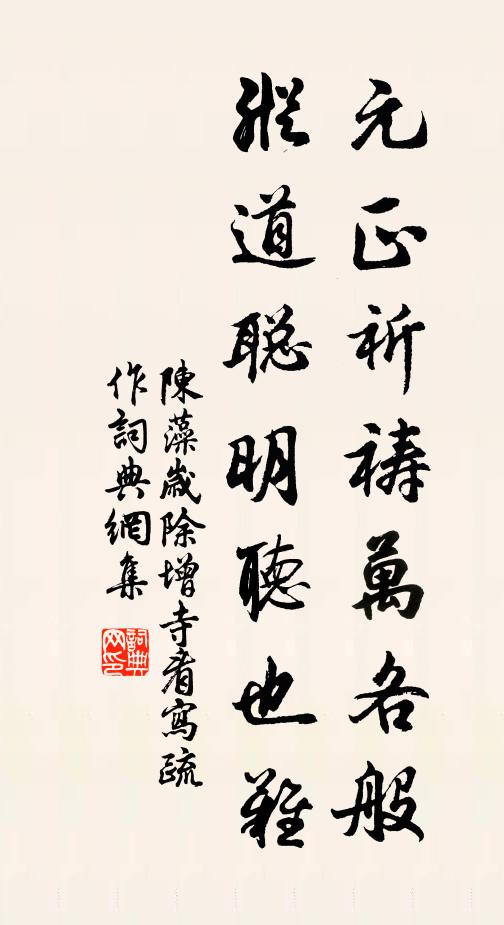 元正祈禱萬各般
縱道聰明聽也難
陳藻歲除增寺看寫疏
作詞典網集
詞典网印